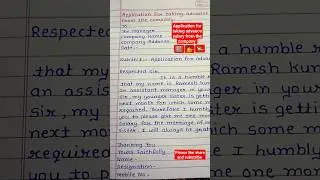 Application for taking advance
from the company
To
The manager
Company Name
Company Address
Date:-
Application for
taking advance
salary from the
company
Subject:- Application for advance
Respected Sir,
It is a humble
that my name is Ramesh kumar
an assistant manager in your
sir, my younger sister is getting
next month for which some mo
required. Therefore I humbly
you to please give me one mon
salary for the marriage of m
sister. I will always be grateful
Thanking You
Yours faithfully
Name -
Designation-
Mobile No -
Please like share
and subscribe
Respected
a humble r
that my
Ramesh kun
an assist
in your
sir, my y
ster is getti
next mo
which some m
require